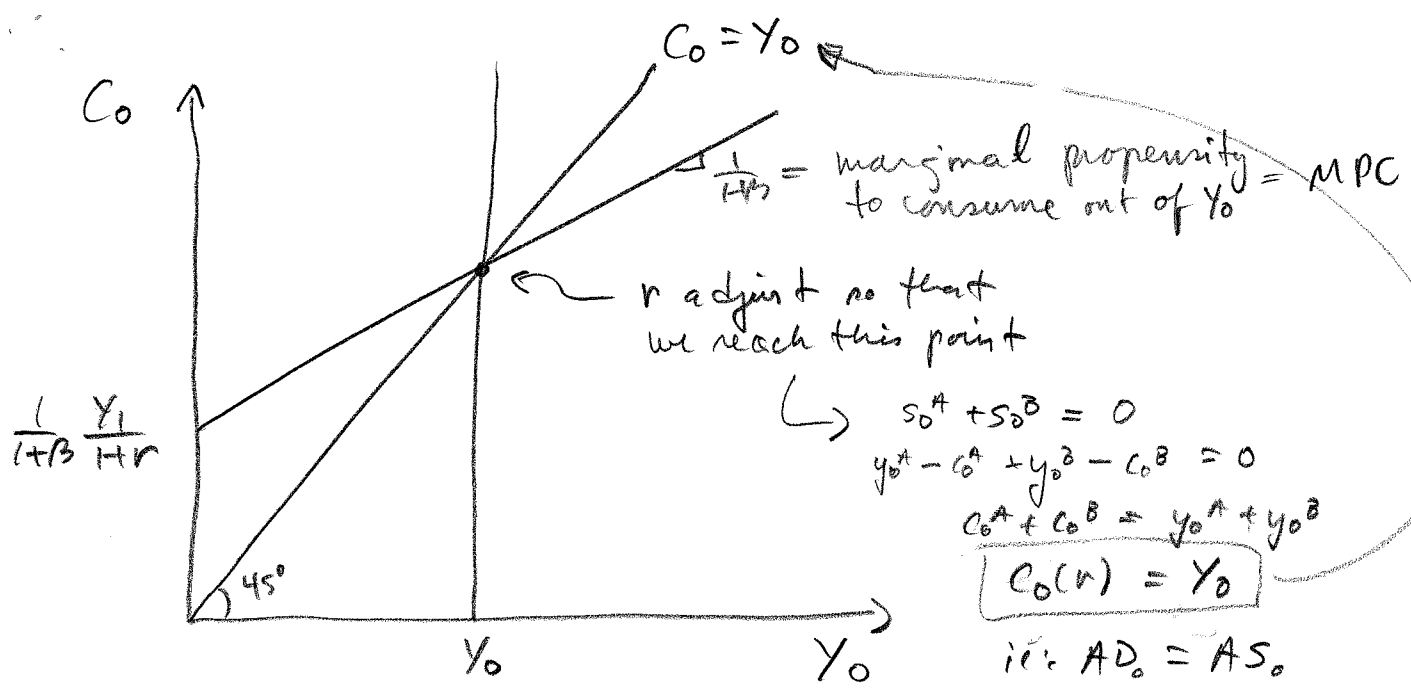 C₀ = Y₀
C₀
1/(1+β) = marginal propensity to consume out of Y₀ = MPC
r adjust so that
we reach this point
1/(1+β) Y₁/(1+r)
s₀ᴬ + s₀ᴮ = 0
y₀ᴬ - c₀ᴬ + y₀ᴮ - c₀ᴮ = 0
c₀ᴬ + c₀ᴮ = y₀ᴬ + y₀ᴮ
C₀(r) = Y₀
45°
Y₀
Y₀
ie: AD₀ = AS₀